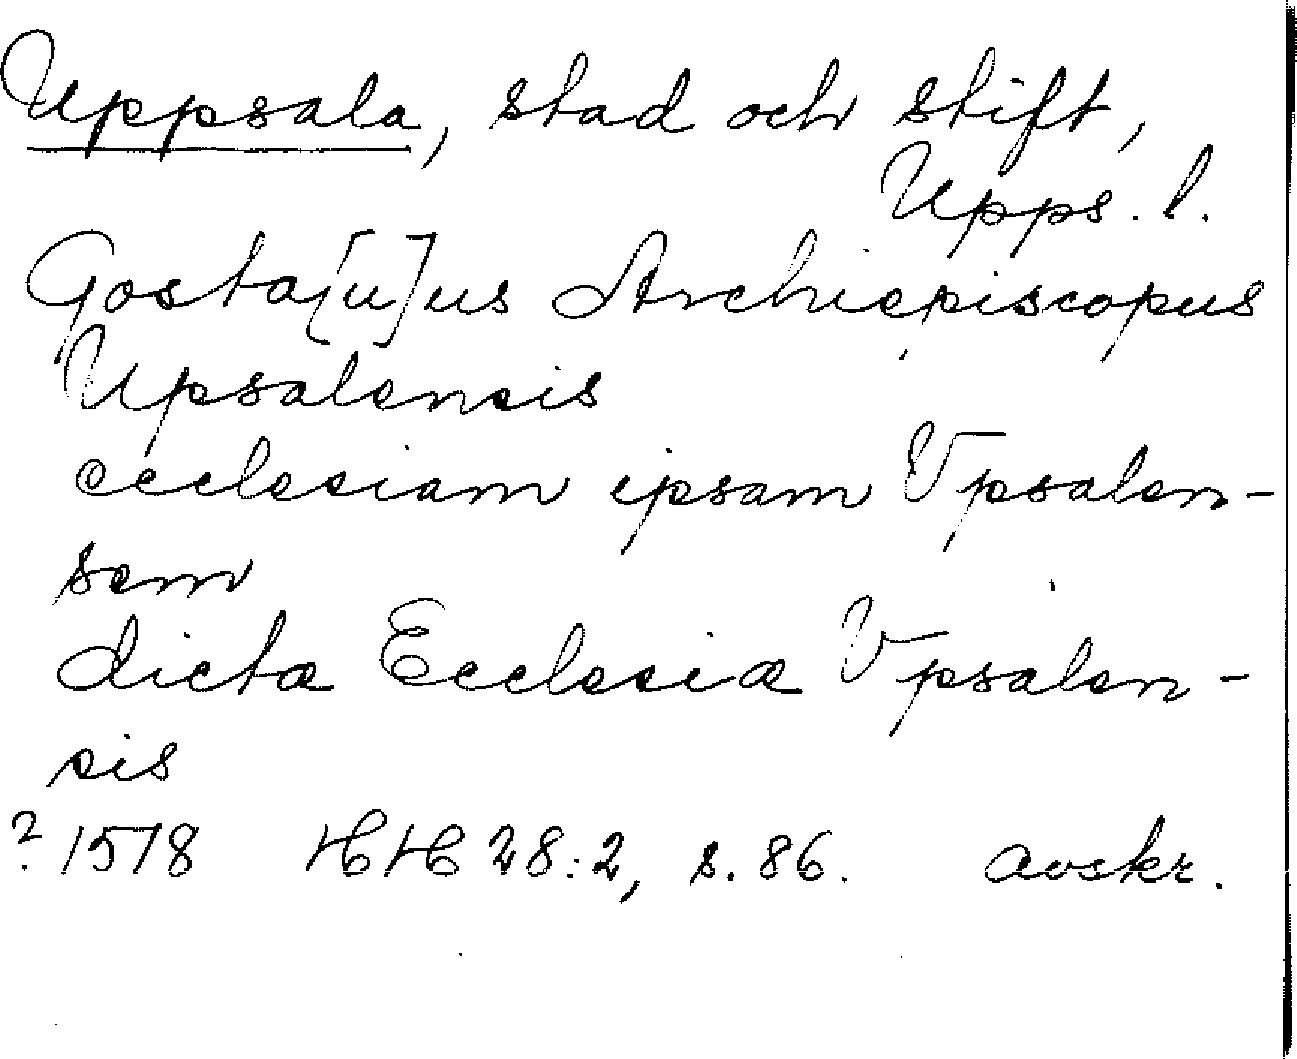 Uppsala, stad och stift,
Upps. l.
Gosta[u]us Archiepiscopus
Upsalensis
ecclesiam ipsam Vpsalen-
sem
dictæ Ecclesiæ Vpsalen-
sis
? 1578 HH 28:2, s. 86. avskr.